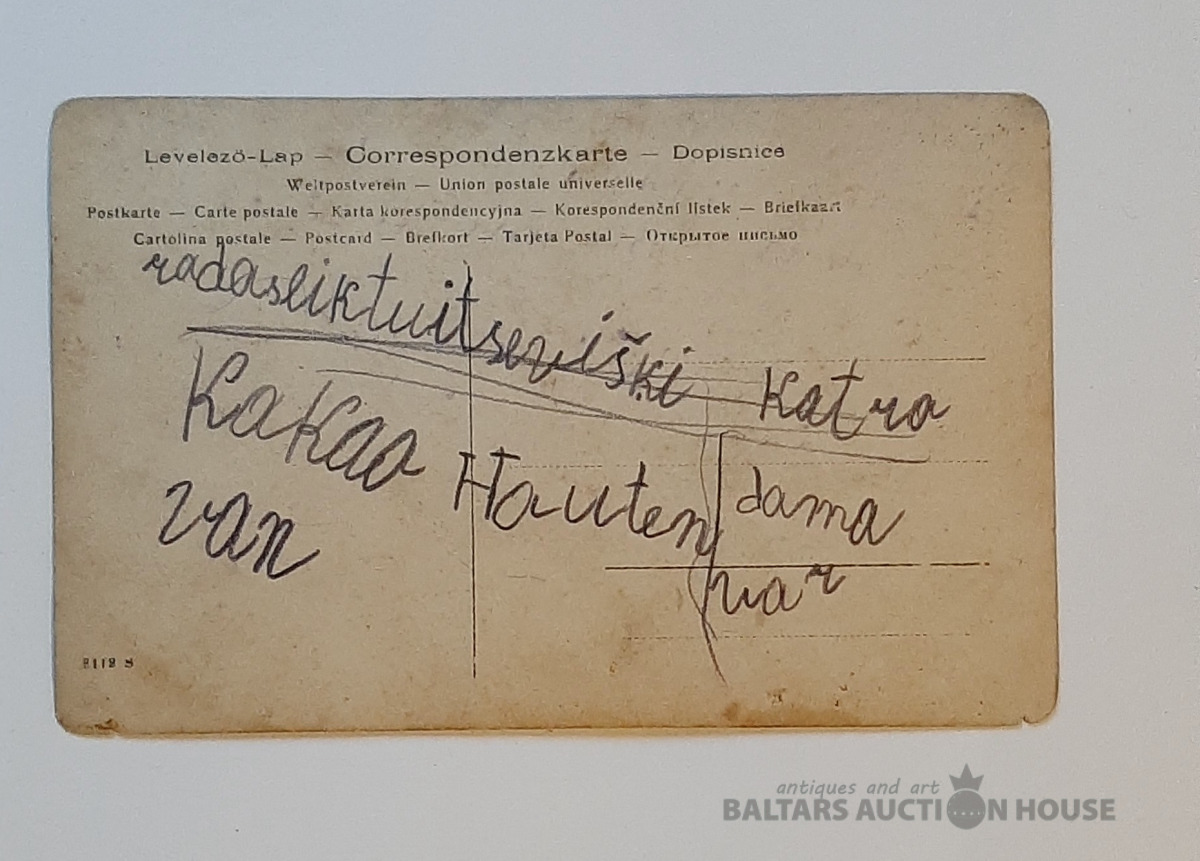 Levelező-Lap — Correspondenzkarte — Dopisnice
Weltpostverein — Union postale universelle
Postkarte — Carte postale — Karta korespondencyjna — Korespondenční lístek — Briefkaart
Cartolina postale — Postcard — Brefkort — Tarjeta Postal — Открытое письмо
radasliktuitseviški katra
Kakao Hauten dama
van var
S
antiques and art
BALTARS AUCTION HOUSE